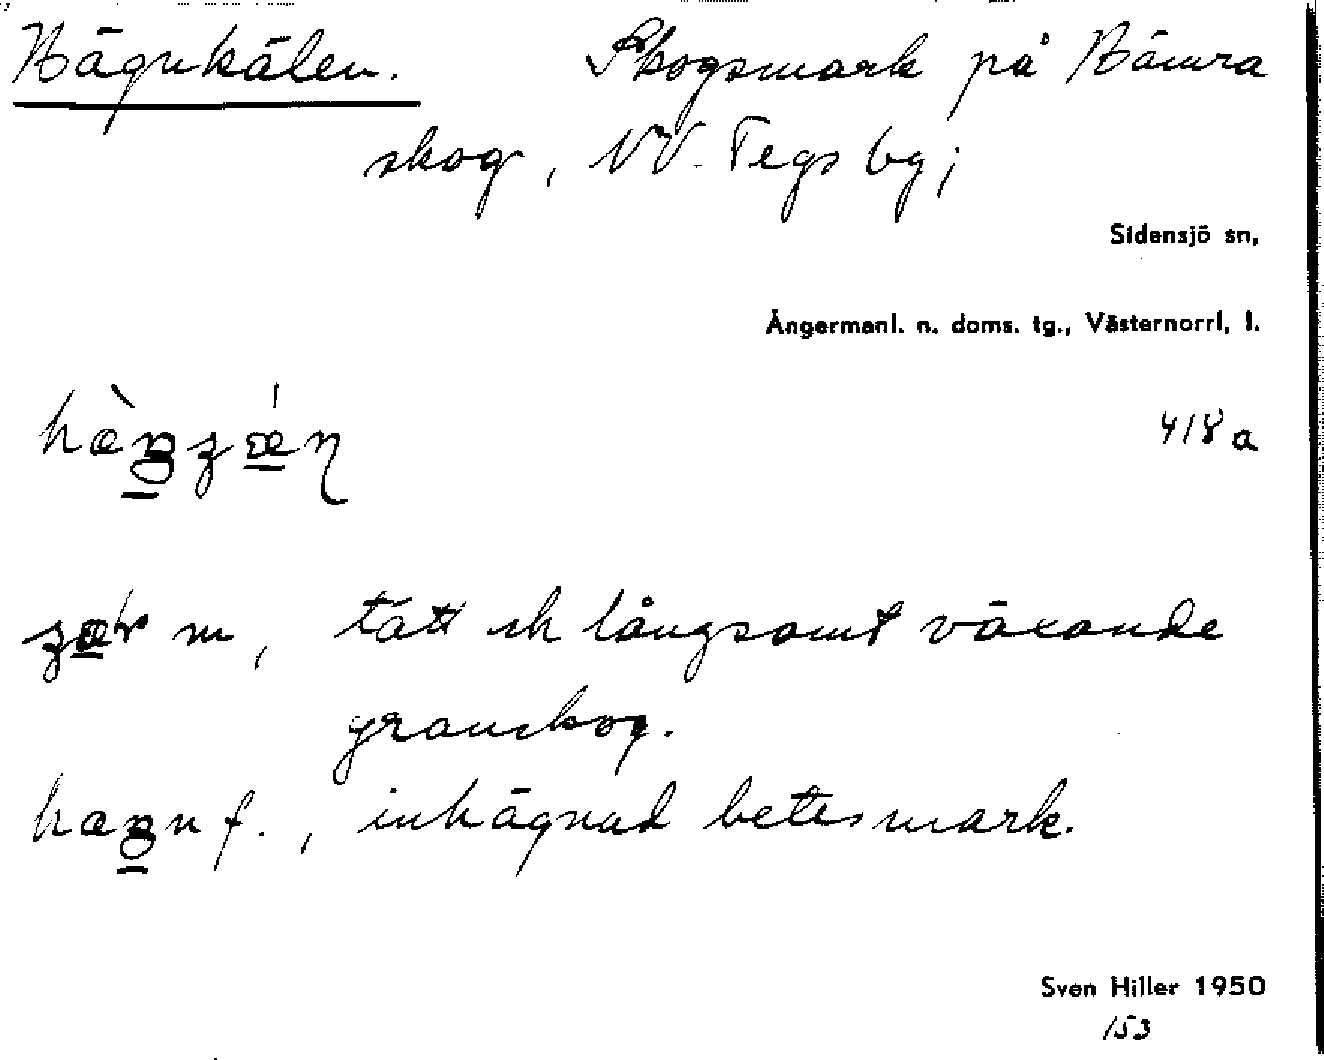 Hägnkälen. Skogsmark på Hämra
skog, NV. Tegs by;
Sidensjö sn,
Ångermanl. n. doms. tg., Västernorrl. l.
418 a
m, tätt och långsamt växande
granskog.
f., inhägnad betesmark.
Sven Hiller 1950
153